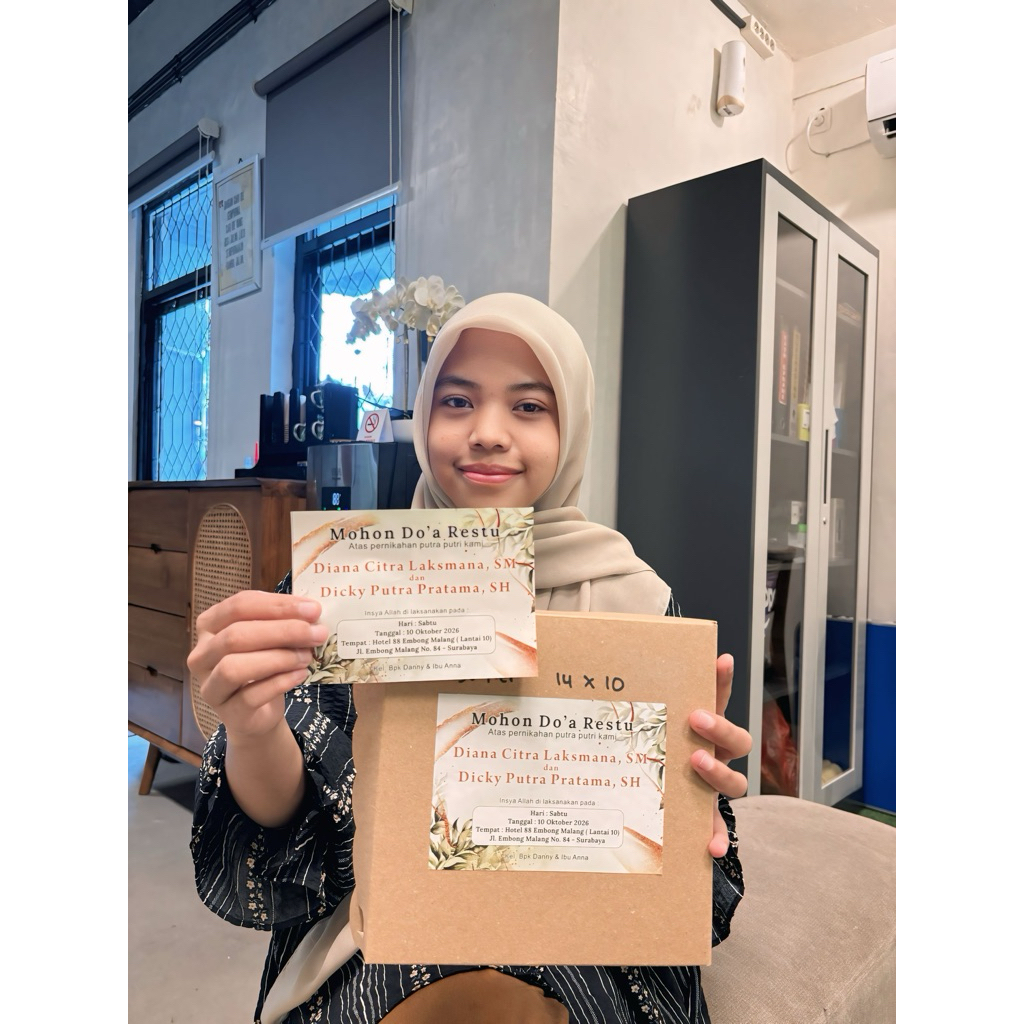 Mohon Do'a Restu
Atas pernikahan putra putri kami
Diana Citra Laksmana, SM
dan
Dicky Putra Pratama, SH
Insya Allah di laksanakan pada :
Hari : Sabtu
Tanggal : 10 Oktober 2026
Tempat : Hotel 88 Embong Malang ( Lantai 10)
Jl. Embong Malang No. 84 - Surabaya
Kel. Bpk Danny & Ibu Anna
14 x 10
Mohon Do'a Restu
Atas pernikahan putra putri kami
Diana Citra Laksmana, SM
dan
Dicky Putra Pratama, SH
Insya Allah di laksanakan pada
Hari : Sabtu
Tanggal : 10 Oktober 2026
Tempat : Hotel 88 Embong Malang ( Lantai 10)
Jl. Embong Malang No. 84 - Surabaya
Kel. Bpk Danny & Ibu Anna